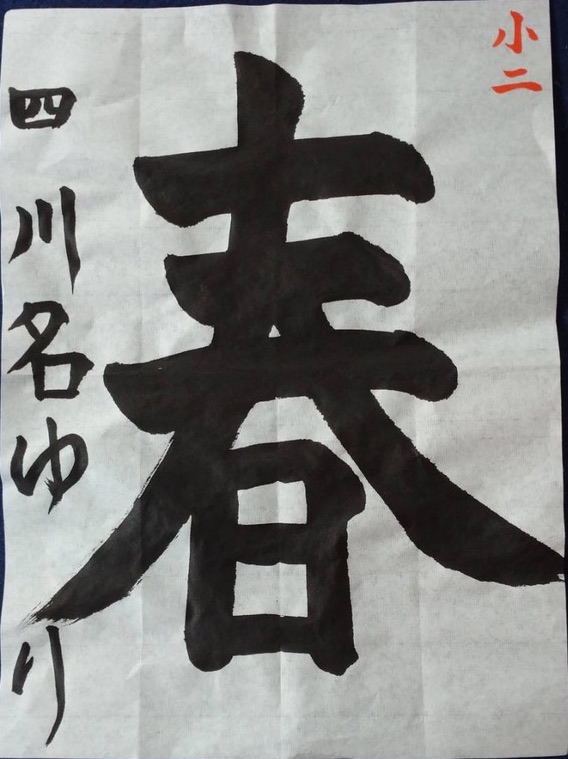 小二
春
四川名ゆり